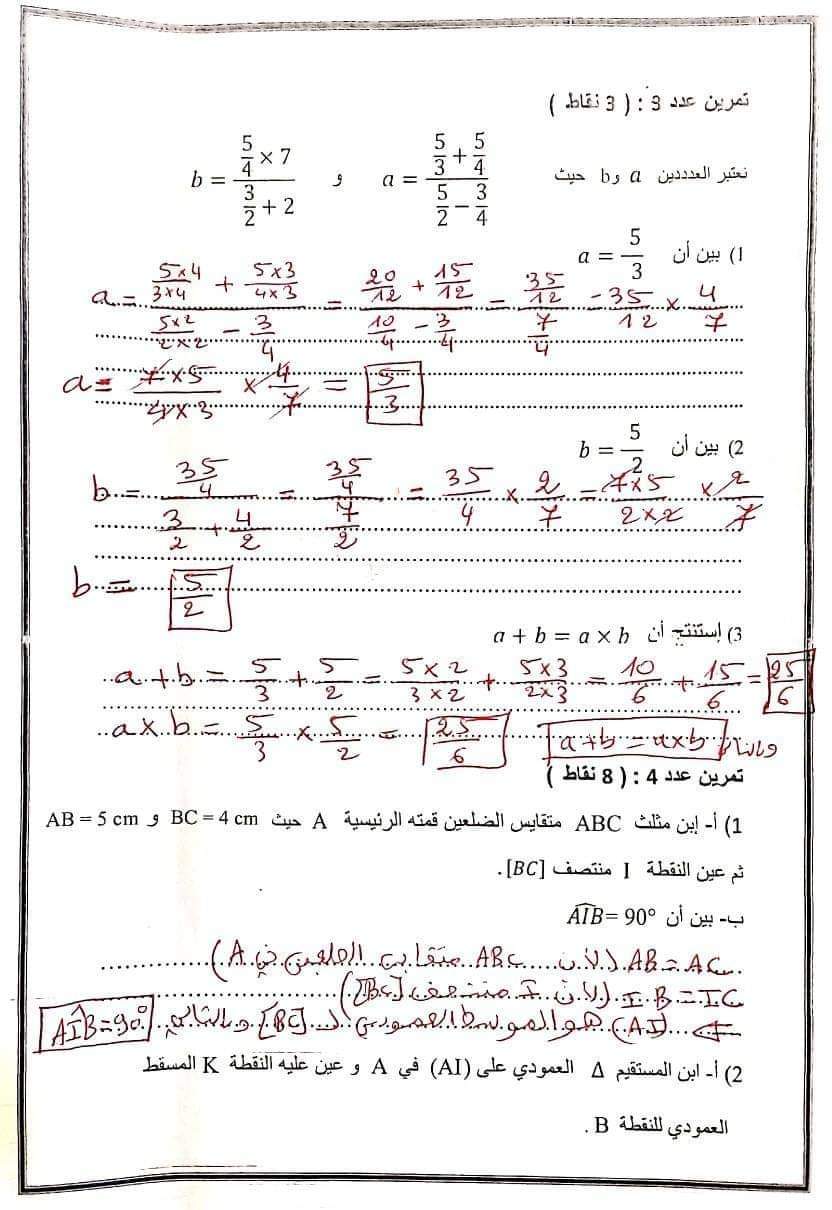 تمرين عدد 3 : ( 3 نقاط )
نعتبر العددين a و b حيث a = (5/3 + 5/4)/(5/2 − 3/4) و b = (5/4 × 7)/(3/2 + 2)
1) بين أن a = 5/3
a = (5×4/3×4 + 5×3/4×3)/(5×2/2×2 − 3/4) = (20/12 + 15/12)/(10/4 − 3/4) = (35/12)/(7/4) = 35/12 × 4/7
a = 7×5/4×3 × 4/7 = 5/3
2) بين أن b = 5/2
b = (35/4)/(3/2 + 4/2) = (35/4)/(7/2) = 35/4 × 2/7 = 7×5/2×2 × 2/7
b = 5/2
3) إستنتج أن a + b = a × b
a + b = 5/3 + 5/2 = 5×2/3×2 + 5×3/2×3 = 10/6 + 15/6 = 25/6
a × b = 5/3 × 5/2 = 25/6 وبالتالي a+b = a×b
تمرين عدد 4 : ( 8 نقاط )
1) أ- إبن مثلث ABC متقايس الضلعين قمته الرئيسية A حيث BC = 4 cm و AB = 5 cm
ثم عين النقطة I منتصف [BC].
ب- بين أن AÎB = 90°
AB = AC (لأن ABC متقايس الضلعين في A)
IB = IC (لأن I منتصف [BC])
⇐ (AI) هو الموسط العمودي لـ [BC] وبالتالي AÎB = 90°
2) أ- ابن المستقيم Δ العمودي على (AI) في A و عين عليه النقطة K المسقط
العمودي للنقطة B .